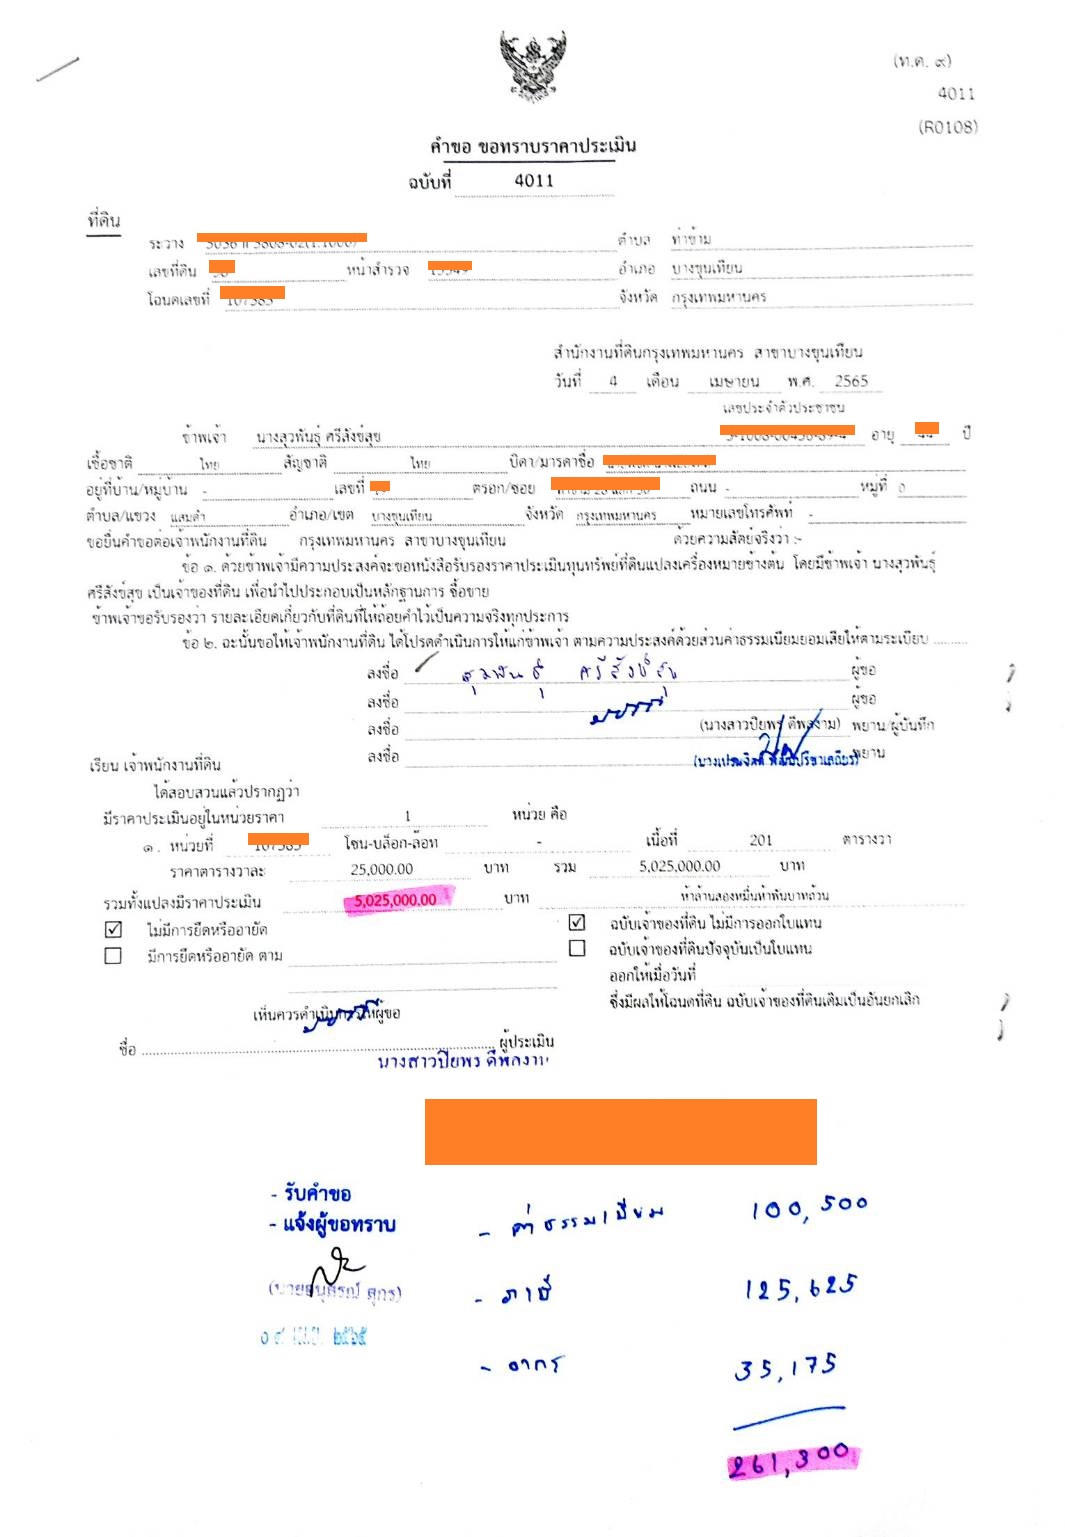 (ท.ด. ๙)
4011
(R0108)
คำขอ ขอทราบราคาประเมิน
ฉบับที่ 4011
ที่ดิน
ระวาง ตำบล ท่าข้าม
เลขที่ดิน หน้าสำรวจ อำเภอ บางขุนเทียน
โฉนดเลขที่ จังหวัด กรุงเทพมหานคร
สำนักงานที่ดินกรุงเทพมหานคร สาขาบางขุนเทียน
วันที่ 4 เดือน เมษายน พ.ศ. 2565
เลขประจำตัวประชาชน
ข้าพเจ้า นางสุวพันธุ์ ศรีสังข์สุข อายุ ปี
เชื้อชาติ ไทย สัญชาติ ไทย บิดา/มารดาชื่อ
อยู่ที่บ้าน/หมู่บ้าน - เลขที่ ตรอก/ซอย ถนน - หมู่ที่ 0
ตำบล/แขวง แสมดำ อำเภอ/เขต บางขุนเทียน จังหวัด กรุงเทพมหานคร หมายเลขโทรศัพท์ -
ขอยื่นคำขอต่อเจ้าพนักงานที่ดิน กรุงเทพมหานคร สาขาบางขุนเทียน ด้วยความสัตย์จริงว่า :-
ข้อ ๑. ด้วยข้าพเจ้ามีความประสงค์จะขอหนังสือรับรองราคาประเมินทุนทรัพย์ที่ดินแปลงเครื่องหมายข้างต้น โดยมีข้าพเจ้า นางสุวพันธุ์
ศรีสังข์สุข เป็นเจ้าของที่ดิน เพื่อนำไปประกอบเป็นหลักฐานการ ซื้อขาย
ข้าพเจ้าขอรับรองว่า รายละเอียดเกี่ยวกับที่ดินที่ให้ถ้อยคำไว้เป็นความจริงทุกประการ
ข้อ ๒. ฉะนั้นขอให้เจ้าพนักงานที่ดิน ได้โปรดดำเนินการให้แก่ข้าพเจ้า ตามความประสงค์ด้วยส่วนค่าธรรมเนียมยอมเสียให้ตามระเบียบ ..........
ลงชื่อ สุวพันธุ์ ศรีสังข์สุข ผู้ขอ
ลงชื่อ ผู้ขอ
ลงชื่อ (นางสาวปิยพร ดีพลงาม) พยาน/ผู้บันทึก
ลงชื่อ พยาน
เรียน เจ้าพนักงานที่ดิน
ได้สอบสวนแล้วปรากฏว่า
มีราคาประเมินอยู่ในหน่วยราคา 1 หน่วย คือ
๑. หน่วยที่ โซน-บล็อก-ล็อท - เนื้อที่ 201 ตารางวา
ราคาตารางวาละ 25,000.00 บาท รวม 5,025,000.00 บาท
รวมทั้งแปลงมีราคาประเมิน 5,025,000.00 บาท ห้าล้านสองหมื่นห้าพันบาทถ้วน
ไม่มีการยึดหรืออายัด ฉบับเจ้าของที่ดิน ไม่มีการออกใบแทน
มีการยึดหรืออายัด ตาม ฉบับเจ้าของที่ดินปัจจุบันเป็นใบแทน
ออกให้เมื่อวันที่
ซึ่งมีผลให้โฉนดที่ดิน ฉบับเจ้าของที่ดินเดิมเป็นอันยกเลิก
เห็นควรดำเนินการให้ผู้ขอ
ชื่อ ผู้ประเมิน
นางสาวปิยพร ดีพลงาม
- รับคำขอ
- แจ้งผู้ขอทราบ
- ค่าธรรมเนียม 100,500
- ภาษี 125,625
- อากร 35,175
261,300